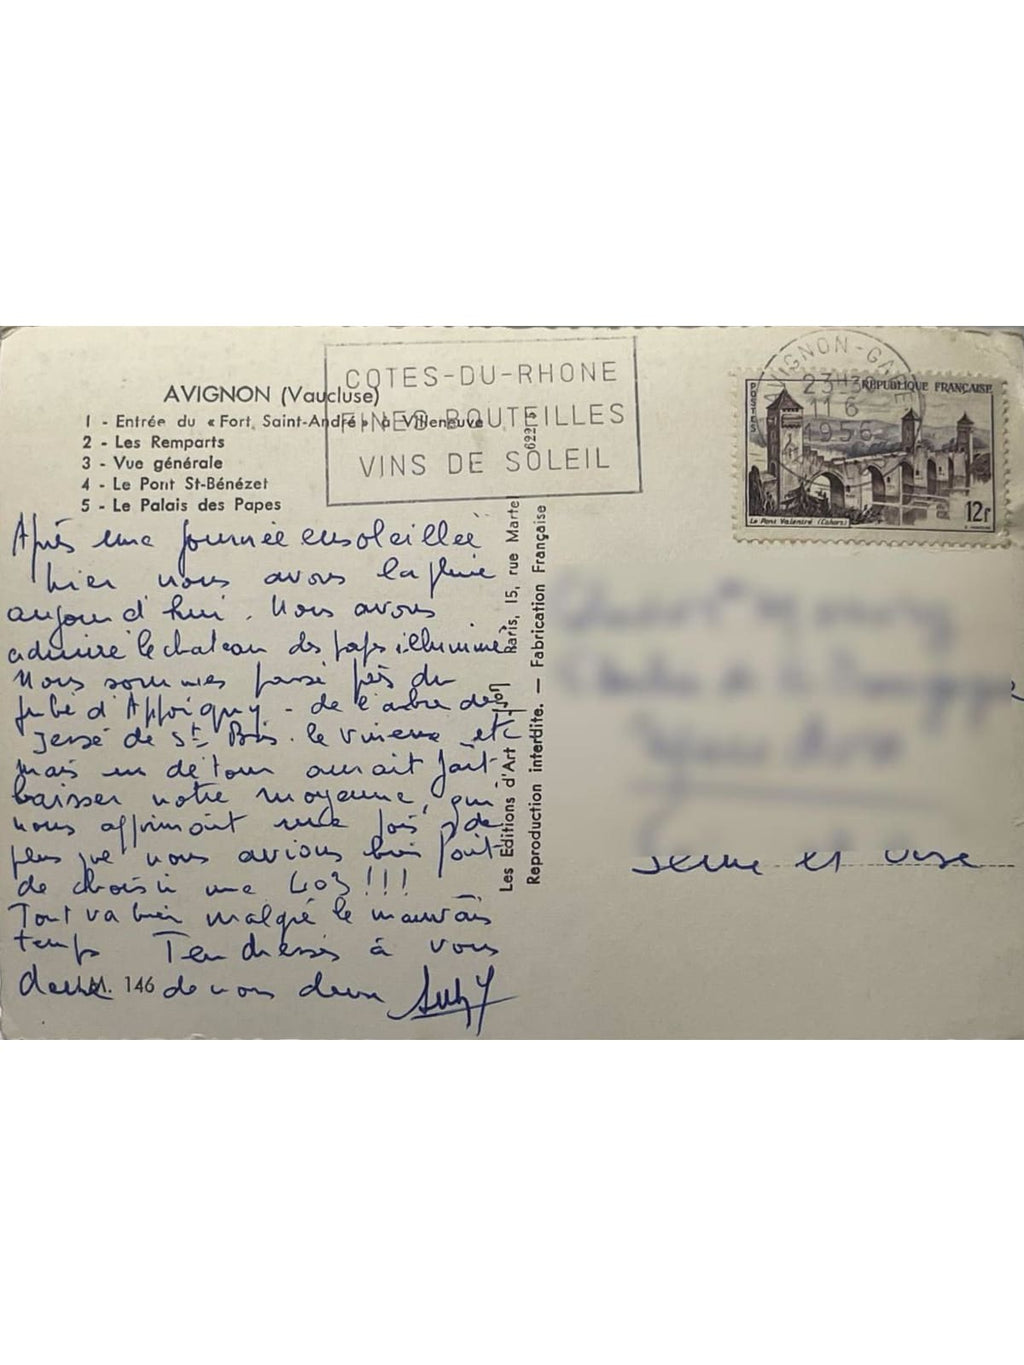 AVIGNON (Vaucluse)
1 - Entrée du « Fort Saint-André » à Villeneuve
2 - Les Remparts
3 - Vue générale
4 - Le Pont St-Bénézet
5 - Le Palais des Papes
COTES-DU-RHONE
FINES BOUTEILLES
VINS DE SOLEIL
AVIGNON-GARE
23H30
11 6
1956
POSTES
RÉPUBLIQUE FRANÇAISE
Le Pont Valentré (Cahors)
12F
Après une journée ensoleillée
hier nous avons la pluie
aujourd'hui. Nous avons
admiré le chateau des papes illuminé
Nous sommes passé près du
jubé d'Appoigny - de l'arbre de
Jessé de St Bris. le vineux etc
mais un détour aurait fait
baisser notre moyenne, qui
nous affirmait une fois de
plus que nous avions bien fait
de choisir une 403 !!!
Tout va bien malgré le mauvais
temps Tendresses à vous
deux de nous deux
M. 146
Les Editions d'Art Paris, 15, rue Martel
Reproduction interdite. — Fabrication Française
6221
Seine et Oise